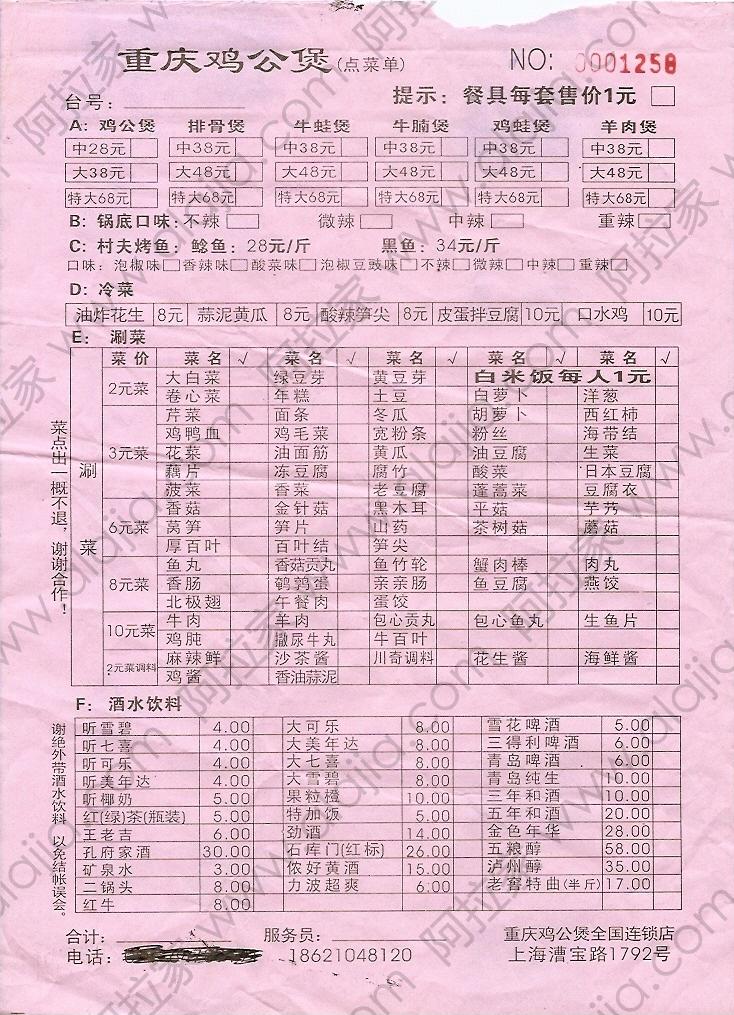 重庆鸡公煲(点菜单) NO: 0001258
台号: 提示: 餐具每套售价1元
A: 鸡公煲 排骨煲 牛蛙煲 牛腩煲 鸡蛙煲 羊肉煲
中28元 中38元 中38元 中38元 中38元 中38元
大38元 大48元 大48元 大48元 大48元 大48元
特大68元 特大68元 特大68元 特大68元 特大68元 特大68元
B: 锅底口味: 不辣 微辣 中辣 重辣
C: 村夫烤鱼: 鲶鱼: 28元/斤 黑鱼: 34元/斤
口味: 泡椒味 香辣味 酸菜味 泡椒豆豉味 不辣 微辣 中辣 重辣
D: 冷菜
油炸花生 8元 蒜泥黄瓜 8元 酸辣笋尖 8元 皮蛋拌豆腐 10元 口水鸡 10元
E: 涮菜
菜价 菜名 √ 菜名 √ 菜名 √ 菜名 √ 菜名 √
涮菜
2元菜 大白菜 绿豆芽 黄豆芽 白米饭每人1元
卷心菜 年糕 土豆 白萝卜 洋葱
3元菜 芹菜 面条 冬瓜 胡萝卜 西红柿
鸡鸭血 鸡毛菜 宽粉条 粉丝 海带结
花菜 油面筋 黄瓜 油豆腐 生菜
藕片 冻豆腐 腐竹 酸菜 日本豆腐
菠菜 香菜 老豆腐 蓬蒿菜 豆腐衣
6元菜 香菇 金针菇 黑木耳 平菇 芋艿
莴笋 笋片 山药 茶树菇 蘑菇
厚百叶 百叶结 笋尖
8元菜 鱼丸 香菇贡丸 鱼竹轮 蟹肉棒 肉丸
香肠 鹌鹑蛋 亲亲肠 鱼豆腐 燕饺
北极翅 午餐肉 蛋饺
10元菜 牛肉 羊肉 包心贡丸 包心鱼丸 生鱼片
鸡肫 撒尿牛丸 牛百叶
2元菜调料 麻辣鲜 沙茶酱 川奇调料 花生酱 海鲜酱
鸡酱 香油蒜泥
菜点出一概不退，谢谢合作！
F: 酒水饮料
听雪碧 4.00 大可乐 8.00 雪花啤酒 5.00
听七喜 4.00 大美年达 8.00 三得利啤酒 6.00
听可乐 4.00 大七喜 8.00 青岛啤酒 6.00
听美年达 4.00 大雪碧 8.00 青岛纯生 10.00
听椰奶 5.00 果粒橙 10.00 三年和酒 10.00
红(绿)茶(瓶装) 5.00 特加饭 5.00 五年和酒 20.00
王老吉 6.00 劲酒 14.00 金色年华 28.00
孔府家酒 30.00 石库门(红标) 26.00 五粮醇 58.00
矿泉水 3.00 侬好黄酒 15.00 泸州醇 35.00
二锅头 8.00 力波超爽 6.00 老窖特曲(半斤) 17.00
红牛 8.00
谢绝外带酒水饮料 以免结帐误会。
合计: 服务员: 重庆鸡公煲全国连锁店
电话: 18621048120 上海漕宝路1792号
阿拉家 www.alajia.com